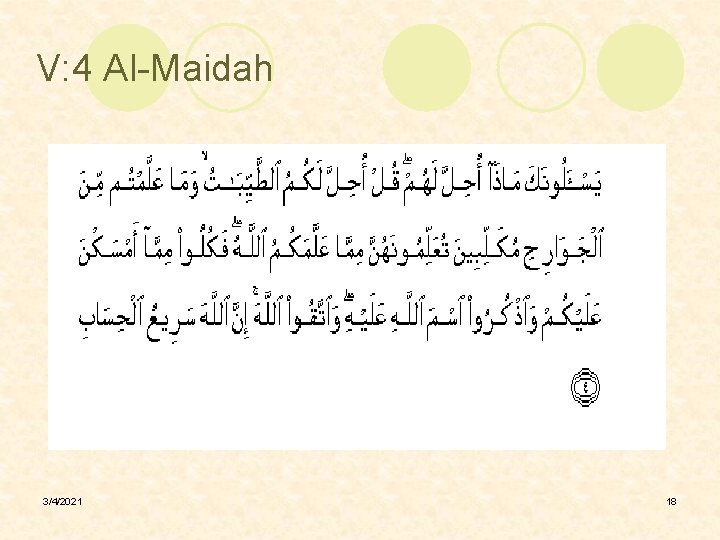 V:4 Al-Maidah
يَسْـَٔلُونَكَ مَاذَآ أُحِلَّ لَهُمْ ۖ قُلْ أُحِلَّ لَكُمُ ٱلطَّيِّبَـٰتُ ۙ وَمَا عَلَّمْتُم مِّنَ
ٱلْجَوَارِحِ مُكَلِّبِينَ تُعَلِّمُونَهُنَّ مِمَّا عَلَّمَكُمُ ٱللَّهُ ۖ فَكُلُوا۟ مِمَّآ أَمْسَكْنَ
عَلَيْكُمْ وَٱذْكُرُوا۟ ٱسْمَ ٱللَّهِ عَلَيْهِ ۖ وَٱتَّقُوا۟ ٱللَّهَ ۚ إِنَّ ٱللَّهَ سَرِيعُ ٱلْحِسَابِ
٤
3/4/2021
18